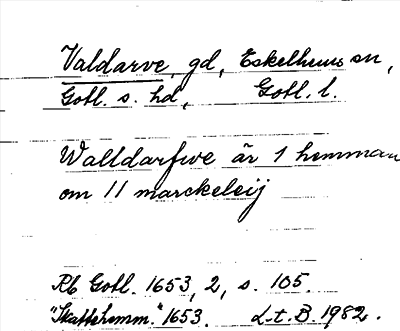 Valdarve, gd, Eskelhems sn,
Gotl. s. hd, Gotl. l.
Walldarfwe är 1 hemman
om 11 marckeleij
Rb Gotl. 1653, 2, s. 105.
"Skattehemm." 1653. L.t.B. 1982.